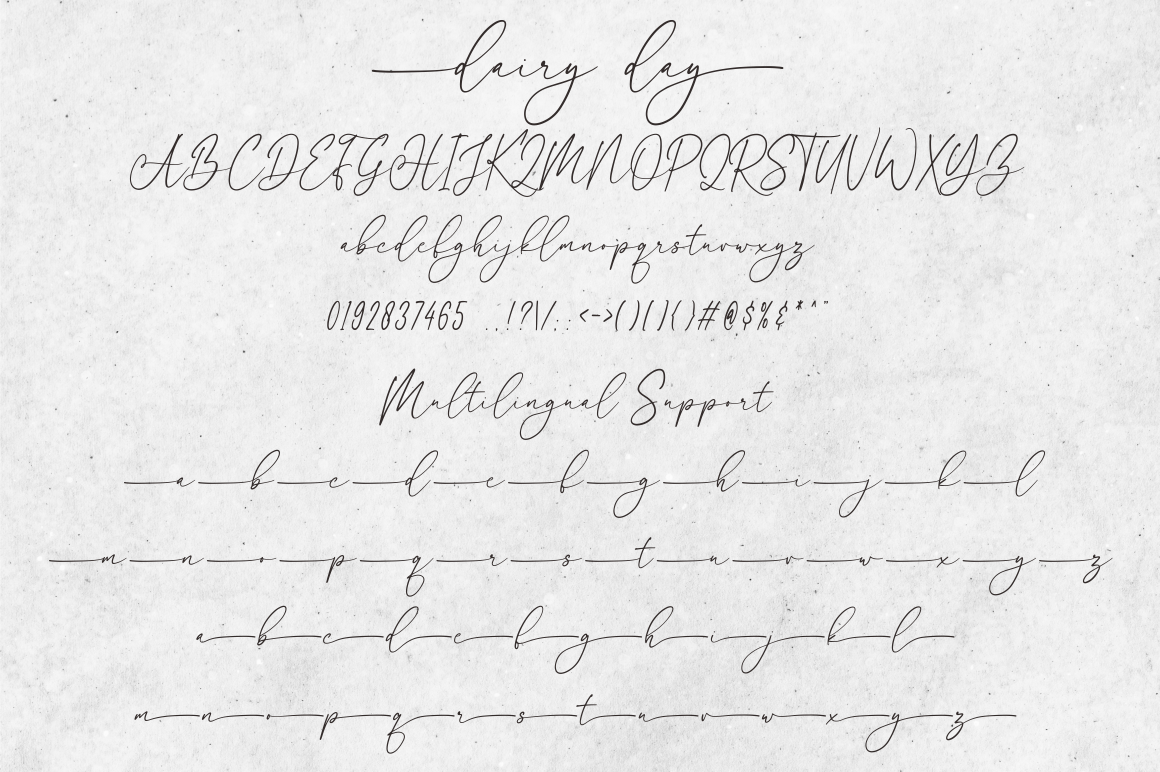 dairy day
ABCDEFGHIJKLMNOPQRSTUVWXYZ
abcdefghijklmnopqrstuvwxyz
0192837465 .,!?\/:;<->()[]{}#@$%&*^"
Multilingual Support
a b c d e f g h i j k l
m n o p q r s t u v w x y z
a b c d e f g h i j k l
m n o p q r s t u v w x y z